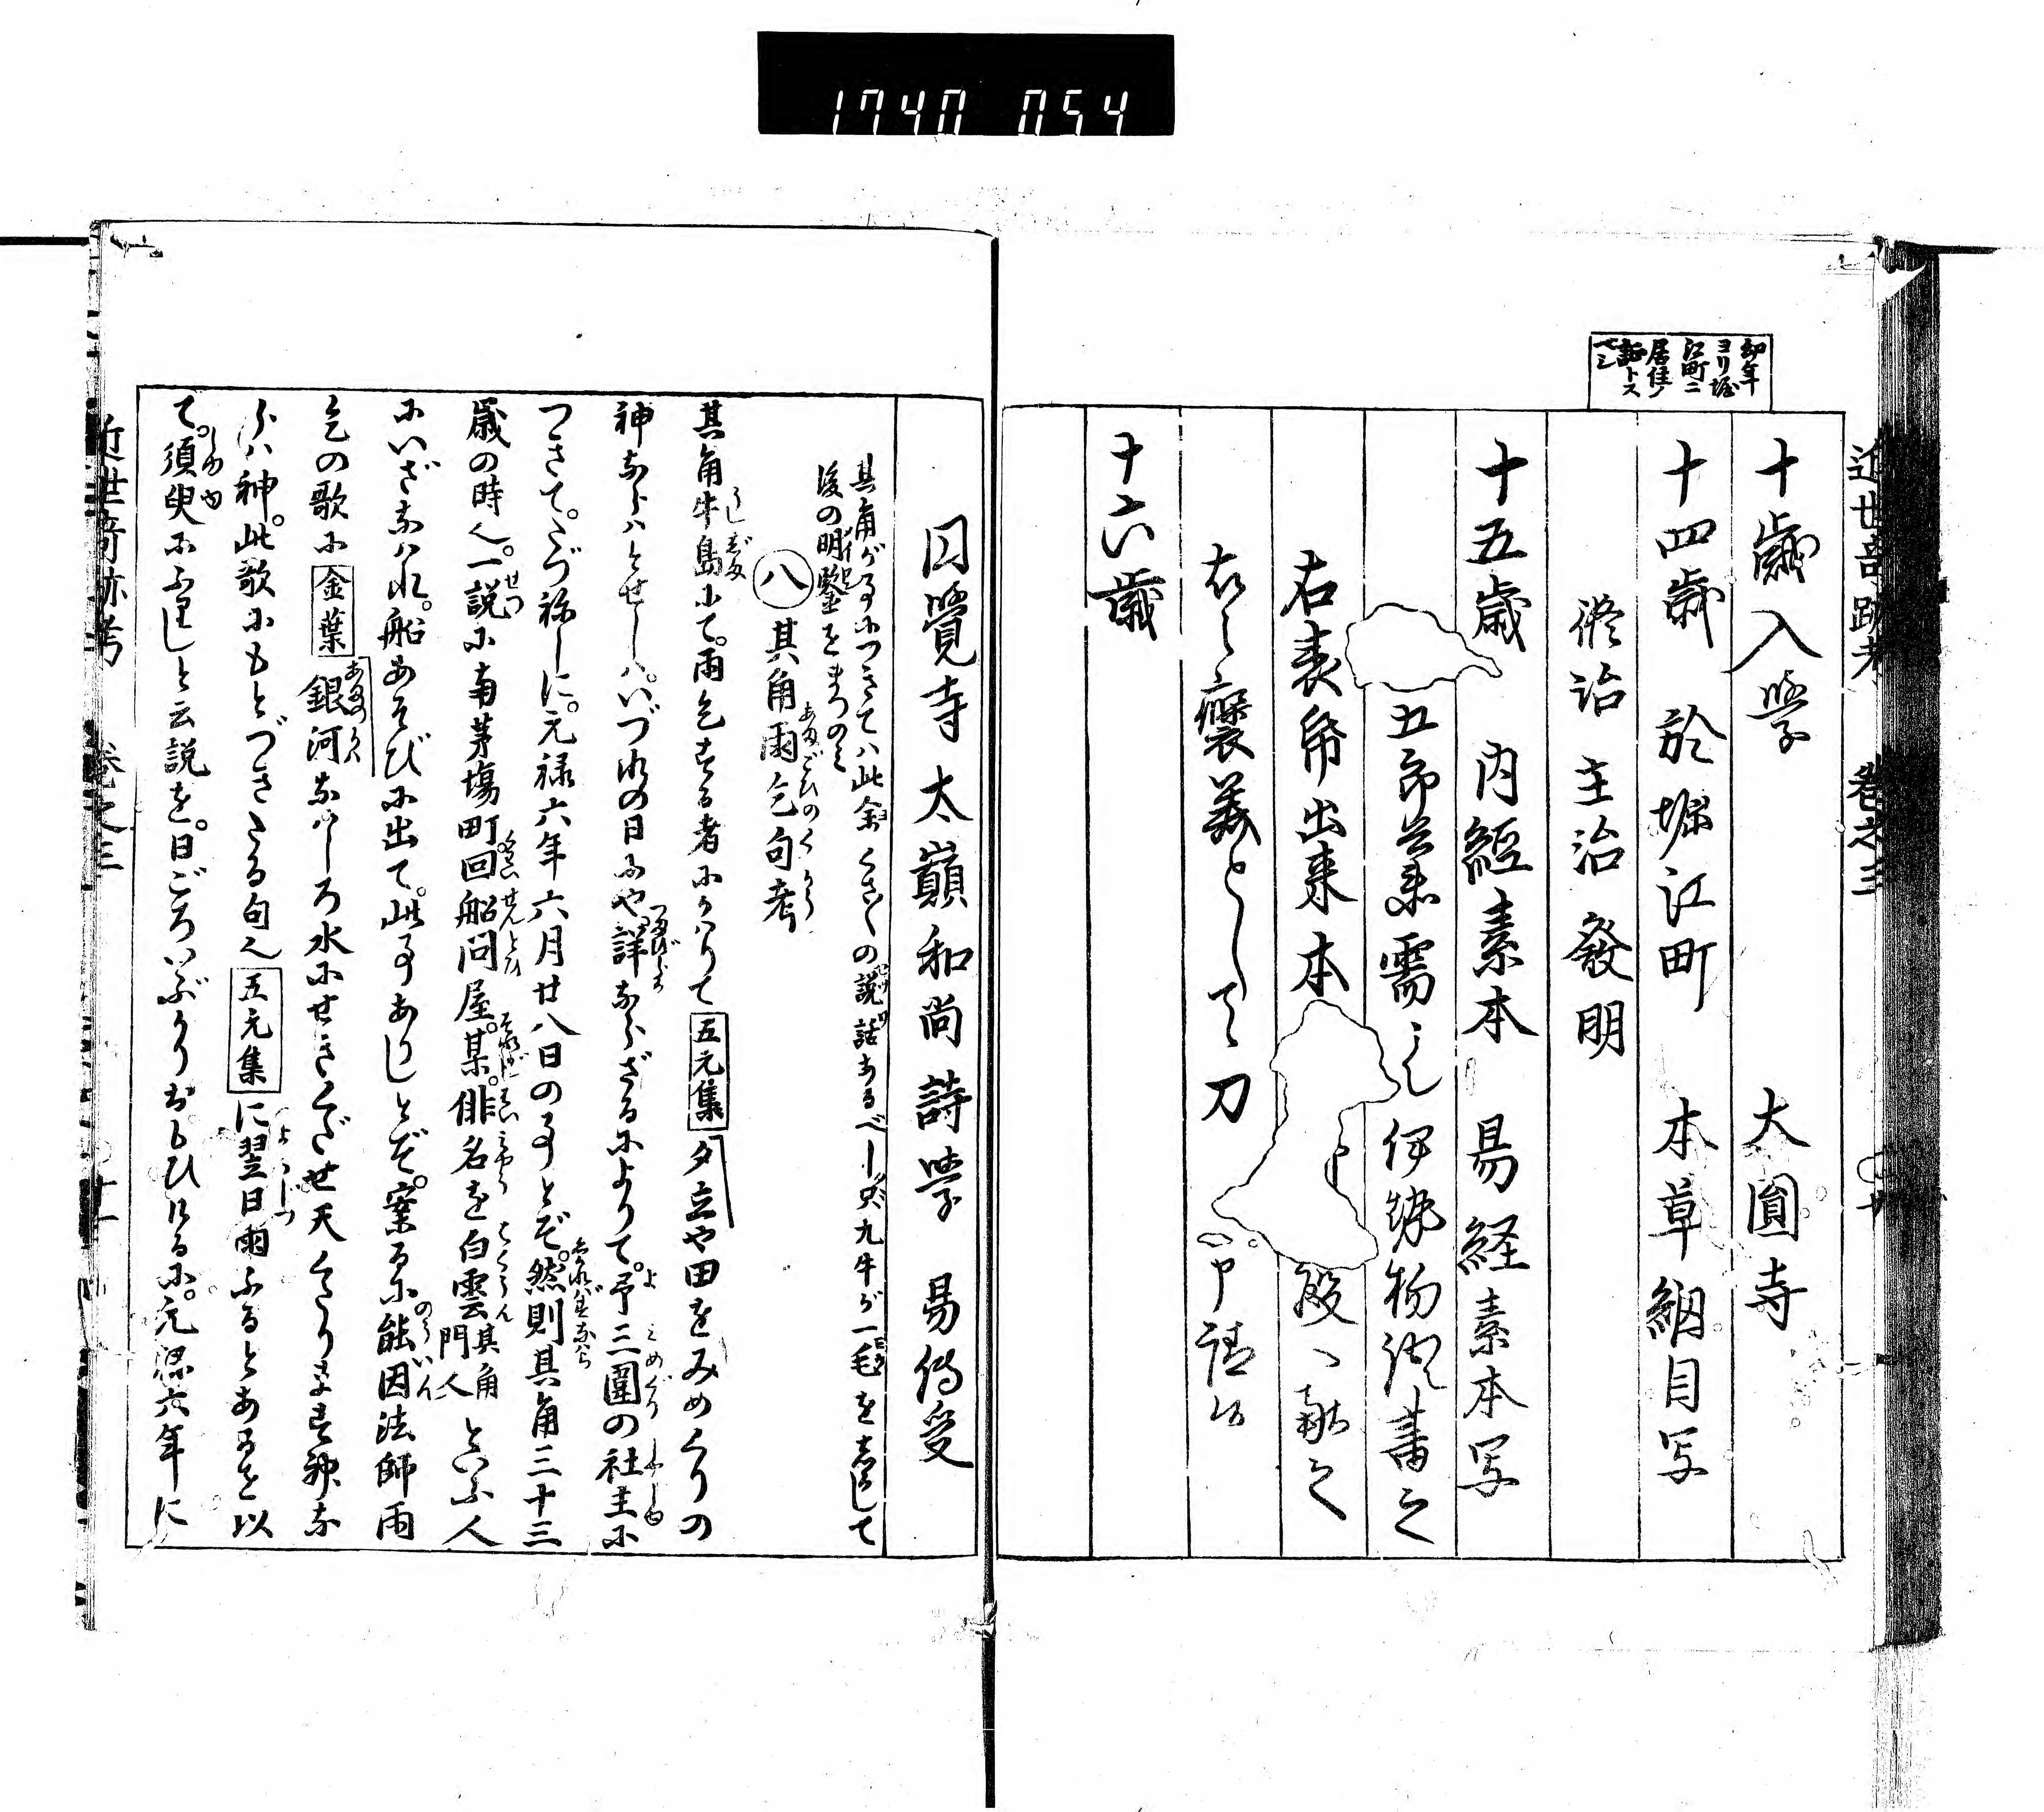 1740 054
近世奇跡考 巻之三
幼年
ヨリ堀
江町ニ
居住ノ
証トス
ベシ
十歳入学 大圓寺
十四歳 於堀江町 本草綱目写
修治 主治 發明
十五歳 内經素本 易経素本写
五郎兵衛需之 伊勢物語書之
右表帋出来 本 殿ヘ献之
為褒美として刀
十六歳
円覺寺大巓和尚詩学 易伝受
其角が事につきては此余くさ〲の説話あるべし只九牛が一毛をしるして
後の明鑒をまつのみ
八 其角雨乞句考
其角牛島にて。雨乞する者にかはりて 五元集 夕立や田をみめぐりの
神ならばとせしハ。いづれの日にや詳ならざるによりて。予三圍の社主に
つきて。たづねしに。元禄六年六月廿八日の事とぞ。然則其角三十三
歳の時也。一説に南茅場町回船問屋。某。俳名を白雲 其角門人 といふ人
にいざなはれ。船あそびに出て。此事ありしとぞ。案るに能因法師雨
乞の歌に 金葉 銀河なはしろ水にせきくだせ天くだります神な
らば神。此歌にもとづきたる句也 五元集 に翌日雨ふるとあるを以
て。須臾にふりしと云説を。日ごろいぶかりおもひけるに。元禄六年に
近世奇跡考 巻之三 十一